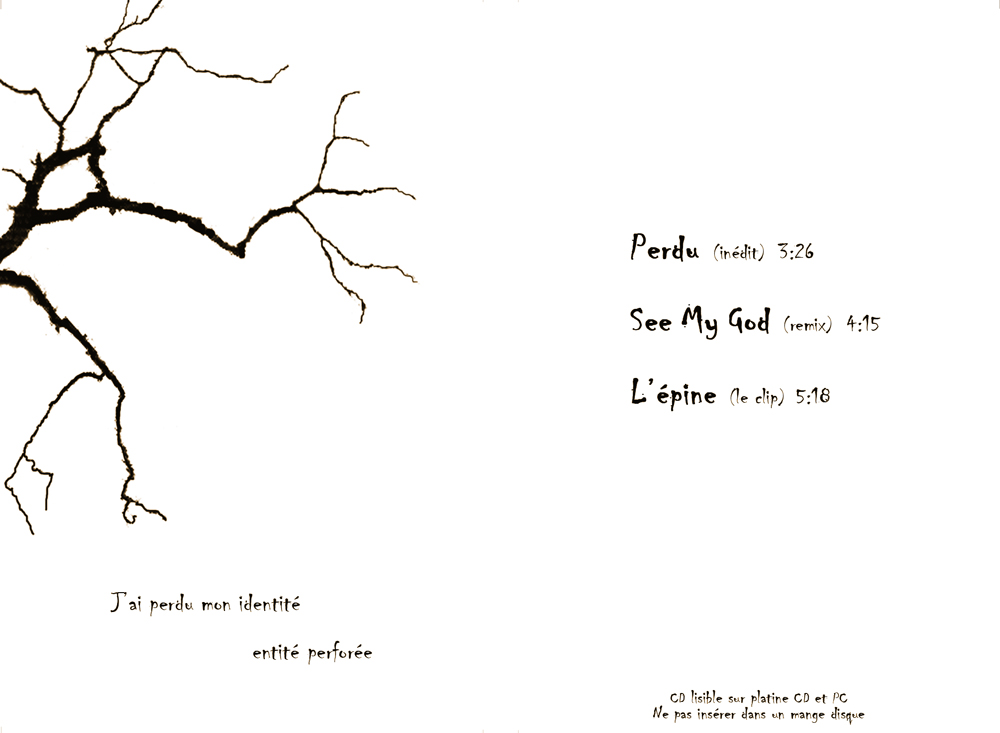 J'ai perdu mon identité
entité perforée
Perdu (inédit) 3:26
See My God (remix) 4:15
L'épine (le clip) 5:18
CD lisible sur platine CD et PC
Ne pas insérer dans un mange disque